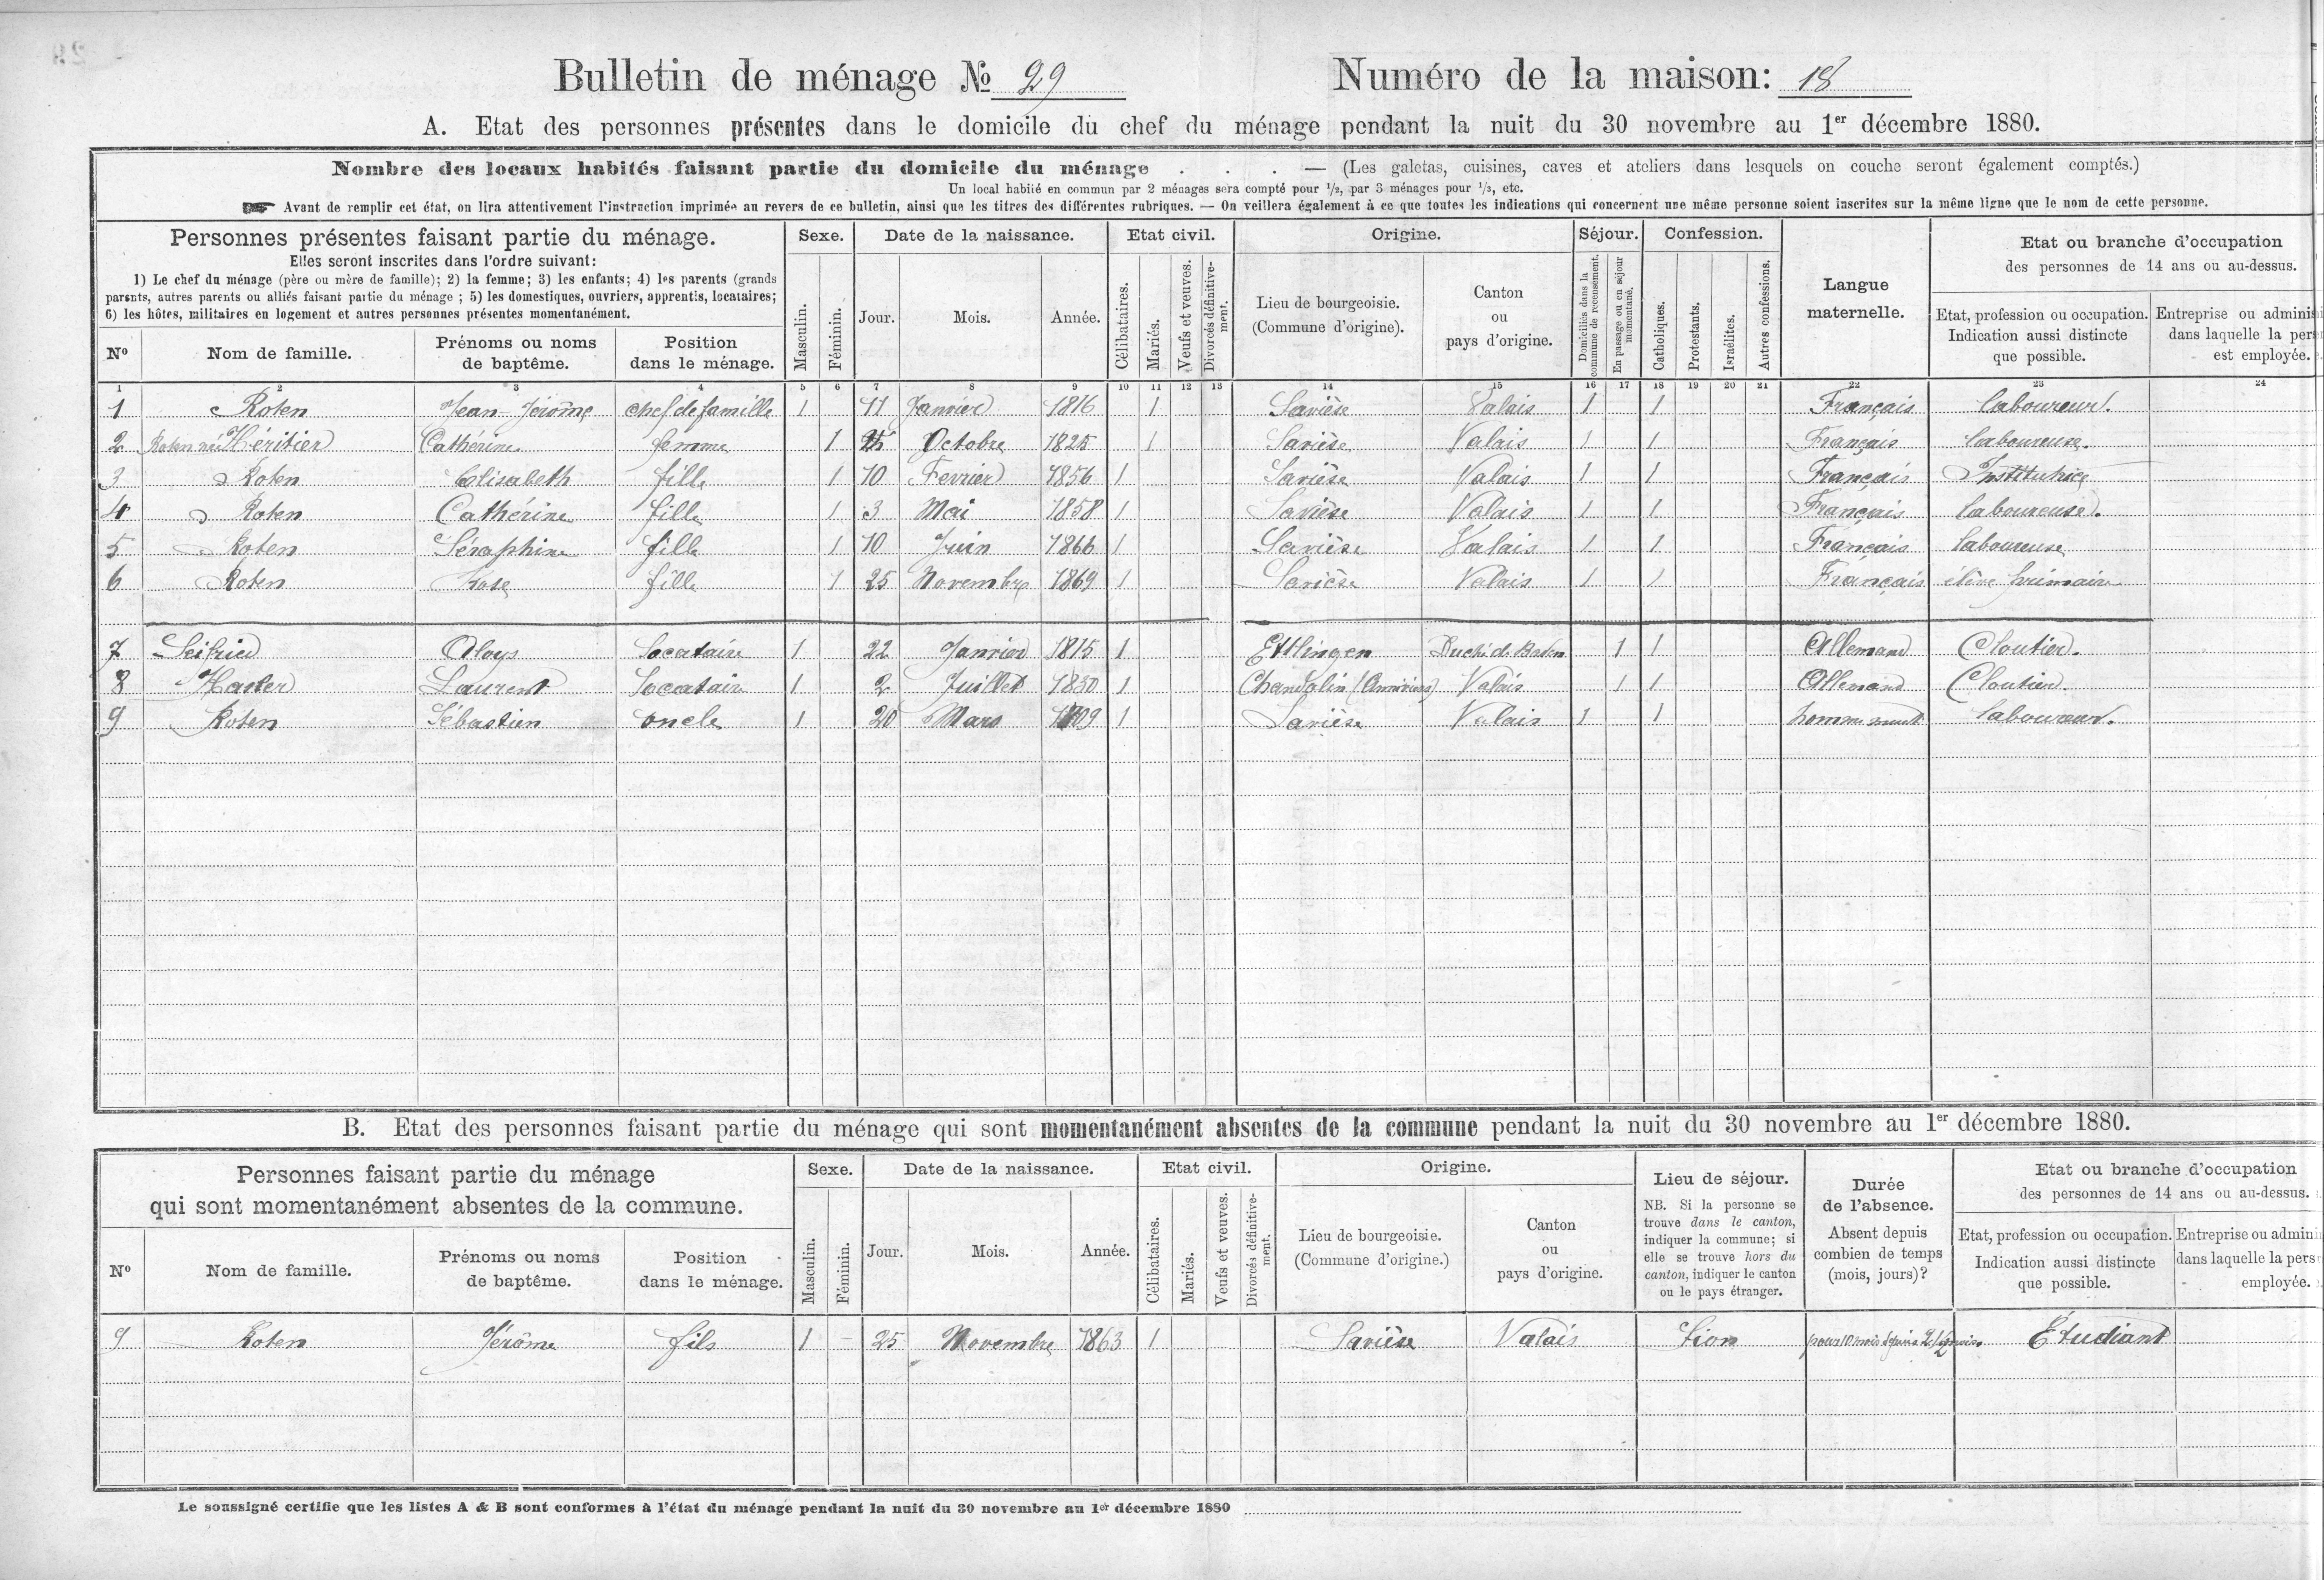 Bulletin de ménage No 29 Numéro de la maison: 18
A. Etat des personnes présentes dans le domicile du chef du ménage pendant la nuit du 30 novembre au 1er décembre 1880.
Nombre des locaux habités faisant partie du domicile du ménage . . . — (Les galetas, cuisines, caves et ateliers dans lesquels on couche seront également comptés.)
Un local habité en commun par 2 ménages sera compté pour 1/2, par 3 ménages pour 1/3, etc.
☛ Avant de remplir cet état, on lira attentivement l'instruction imprimée au revers de ce bulletin, ainsi que les titres des différentes rubriques. — On veillera également à ce que toutes les indications qui concernent une même personne soient inscrites sur la même ligne que le nom de cette personne.
Personnes présentes faisant partie du ménage.
Elles seront inscrites dans l'ordre suivant:
1) Le chef du ménage (père ou mère de famille); 2) la femme; 3) les enfants; 4) les parents (grands
parents, autres parents ou alliés faisant partie du ménage ; 5) les domestiques, ouvriers, apprentis, locataires;
6) les hôtes, militaires en logement et autres personnes présentes momentanément.
No
Nom de famille.
Prénoms ou noms
de baptême.
Position
dans le ménage.
Sexe.
Masculin.
Féminin.
Date de la naissance.
Jour.
Mois.
Année.
Etat civil.
Célibataires.
Mariés.
Veufs et veuves.
Divorcés définitive-
ment.
Origine.
Lieu de bourgeoisie.
(Commune d'origine).
Canton
ou
pays d'origine.
Séjour.
Domiciliés dans la
commune de recensement.
En passage ou en séjour
momentané.
Confession.
Catholiques.
Protestants.
Israélites.
Autres confessions.
Langue
maternelle.
Etat ou branche d'occupation
des personnes de 14 ans ou au-dessus.
Etat, profession ou occupation.
Indication aussi distincte
que possible.
Entreprise ou adminis
dans laquelle la pers
est employée.
1 2 3 4 5 6 7 8 9 10 11 12 13 14 15 16 17 18 19 20 21 22 23 24
1 Roten Jean-Jérôme chef de famille 1 11 Janvier 1816 1 Savièse Valais 1 1 Français laboureur.
2 Roten née Héritier Cathérine femme 1 Octobre 1825 1 Savièse Valais 1 1 Français laboureuse.
3 Roten Elisabeth fille 1 10 Fevrier 1856 1 Savièse Valais 1 1 Français Institutrice
4 Roten Cathérine fille 1 3 Mai 1858 1 Savièse Valais 1 1 Français laboureuse.
5 Roten Séraphine fille 1 10 Juin 1866 1 Savièse Valais 1 1 Français laboureuse
6 Roten Rose fille 1 25 Novembre 1869 1 Savièse Valais 1 1 Français élève primaire
7 Seifried Aloys Locataire 1 22 Janvier 1815 1 Ettlingen Duché de Baden 1 1 Allemand Cloutier.
8 Laurent Locataire 1 2 Juillet 1830 1 Chandolin (Anniviers) Valais 1 1 Allemand Cloutier.
9 Roten Sébastien oncle 1 20 Mars 1809 1 Savièse Valais 1 1 homme muet laboureur.
B. Etat des personnes faisant partie du ménage qui sont momentanément absentes de la commune pendant la nuit du 30 novembre au 1er décembre 1880.
Personnes faisant partie du ménage
qui sont momentanément absentes de la commune.
No
Nom de famille.
Prénoms ou noms
de baptême.
Position
dans le ménage.
Sexe.
Masculin.
Féminin.
Date de la naissance.
Jour.
Mois.
Année.
Etat civil.
Célibataires.
Mariés.
Veufs et veuves.
Divorcés définitive-
ment.
Origine.
Lieu de bourgeoisie.
(Commune d'origine.)
Canton
ou
pays d'origine.
Lieu de séjour.
NB. Si la personne se
trouve dans le canton,
indiquer la commune; si
elle se trouve hors du
canton, indiquer le canton
ou le pays étranger.
Durée
de l'absence.
Absent depuis
combien de temps
(mois, jours)?
Etat ou branche d'occupation
des personnes de 14 ans ou au-dessus.
Etat, profession ou occupation.
Indication aussi distincte
que possible.
Entreprise ou admini
dans laquelle la pers
employée.
9 Roten Jérôme fils 1 – 25 Novembre 1863 1 Savièse Valais Sion pour 10 mois depuis 2 1/2 mois. Etudiant
Le soussigné certifie que les listes A & B sont conformes à l'état du ménage pendant la nuit du 30 novembre au 1er décembre 1880